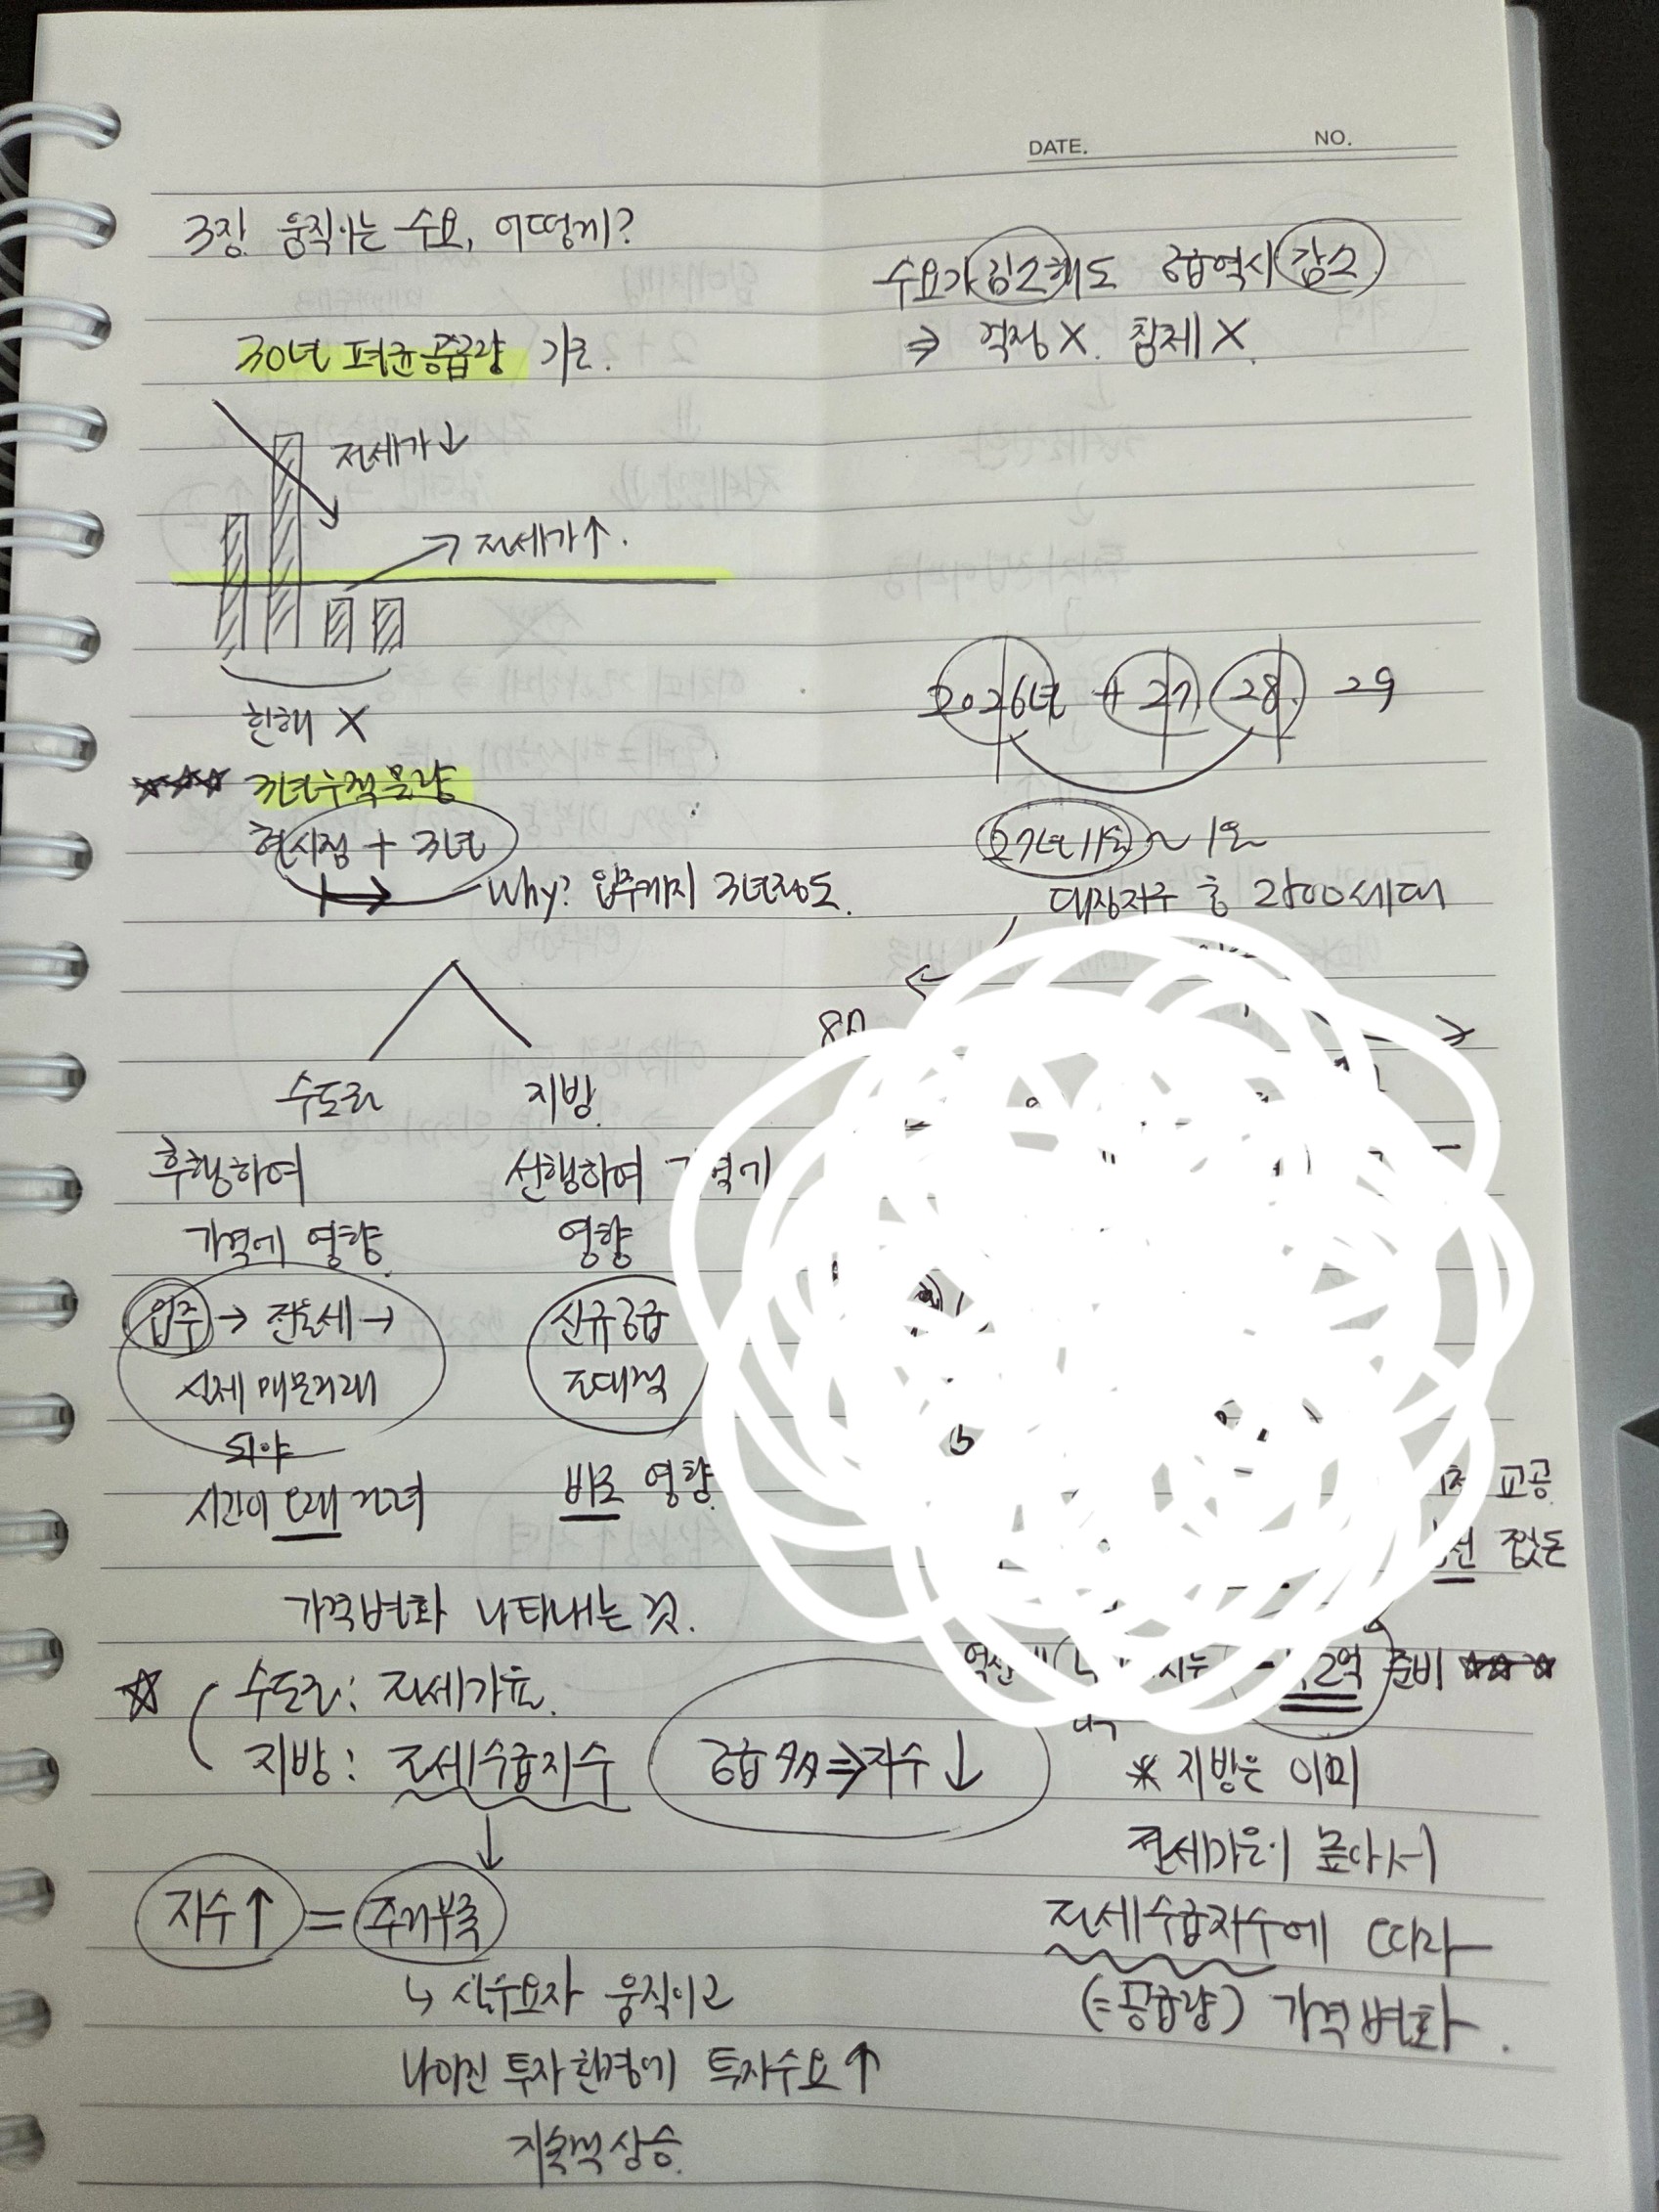 DATE.
NO.
3장. 움직이는 수요, 어떻게?
30년 평균공급량 기준.
전세가↓
↗ 전세가↑.
한해 X
★★★ 3년누적물량
현시점 + 3년
Why? 입주까지 3년정도.
수도권
지방.
후행하여
가격에 영향.
선행하여
영향
입주 → 전월세 →
실제 매물거래
되야
시간이 오래 걸려
신규공급
절대적
바로 영향.
가격변화 나타내는 것.
☆ 수도권: 전세가율.
지방: 전세수급지수
공급 多 ⇒ 지수 ↓
지수↑ = 주거부족
↳ 실수요자 움직이고
나아진 투자환경에 투자수요↑
지속적 상승.
수요가 감소해도 공급역시 감소
⇒ 걱정 X. 침체 X.
2026년 + 27. 28. 29
27년 11월 ~ 1월
대장지구 총
교공.
준비 ★★★
* 지방은 이미
전세가율이 높아서
전세수급지수에 따라
(=공급량) 가격변화.